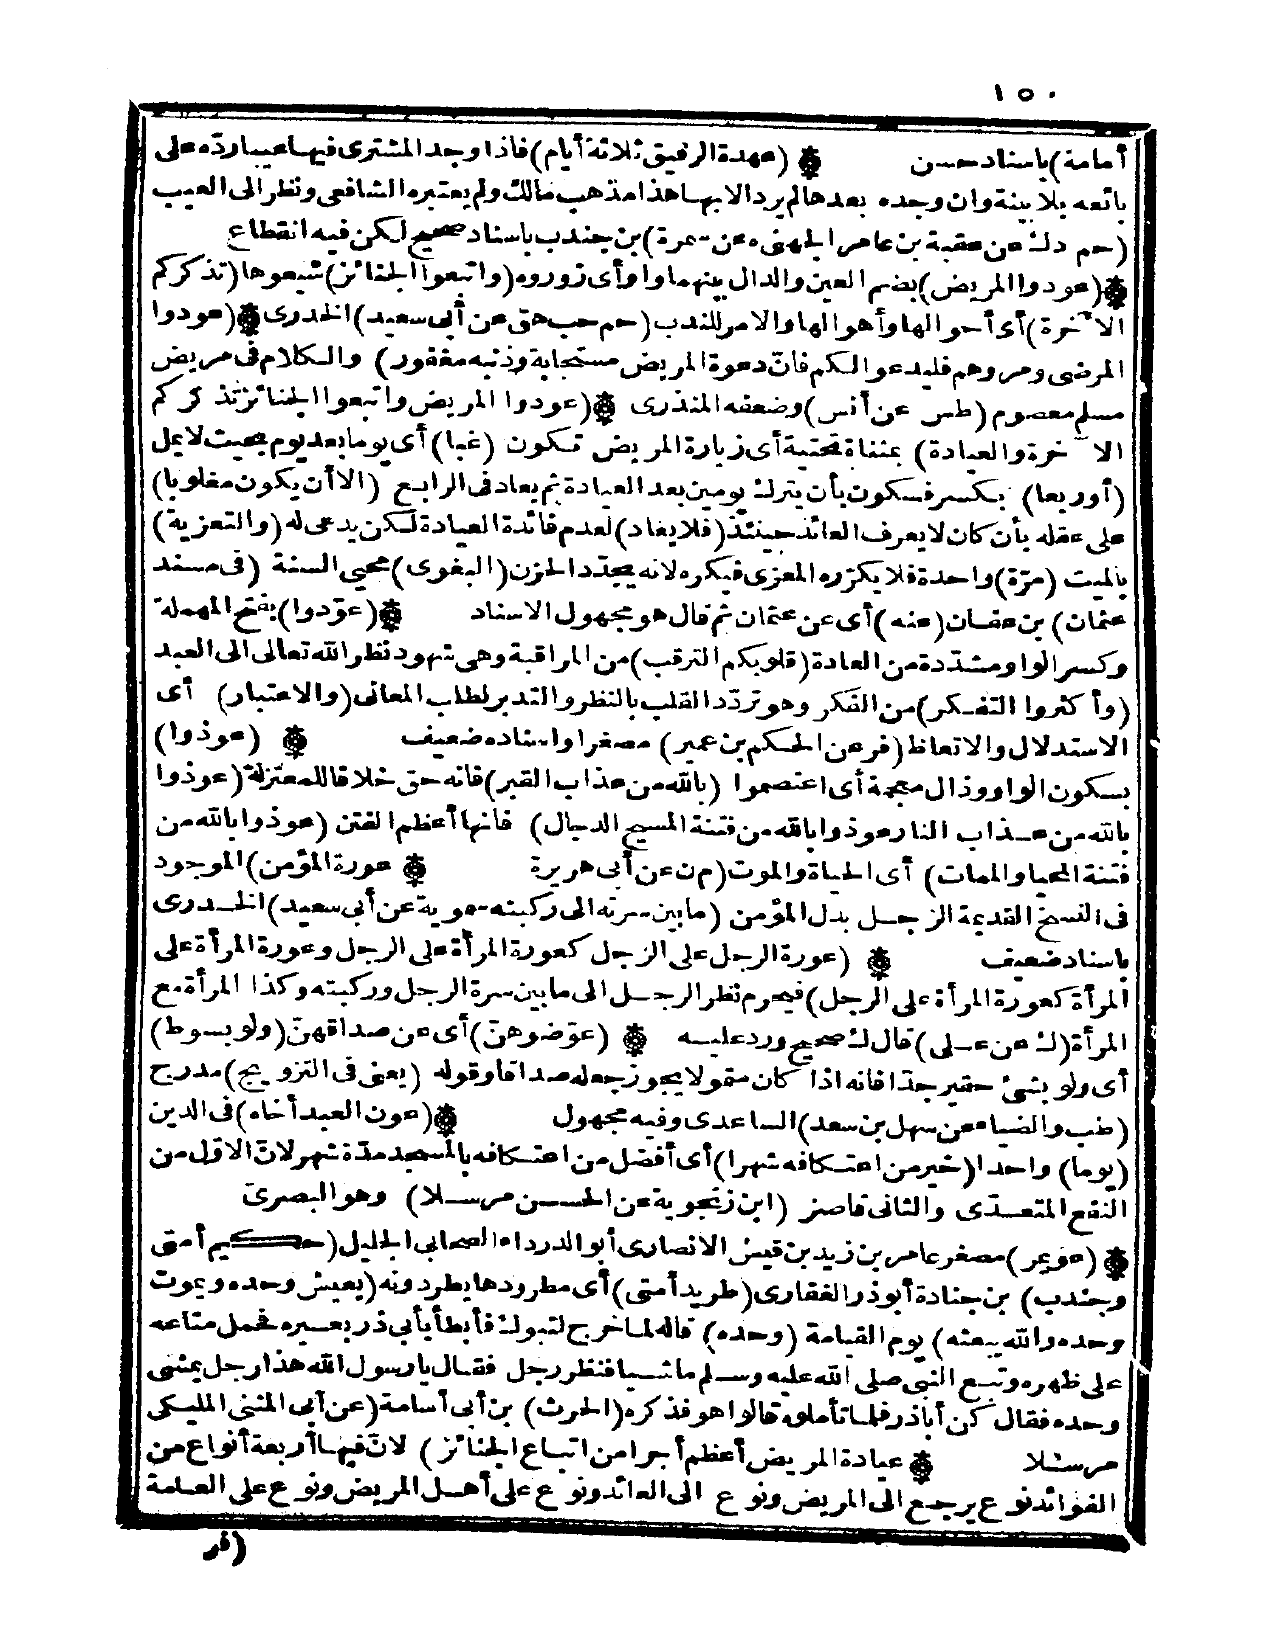 ١٥٠
أمامة) باسناد حسن ۞ (عهدة الرقيق ثلاثة أيام) فاذا وجد المشترى فيها عيبا ردّه على
بائعه بلا بينة وان وجده بعدها لم يرد الا بها هذا مذهب مالك ولم يعتبره الشافعى ونظر الى العيب
(حم د ك عن عقبة بن عامر الجهنى ه عن سمرة) بن جندب باسناد صحيح لكن فيه انقطاع
۞ (عودوا المريض) بضم العين والدال بينهما واو أى زوروه (واتبعوا الجنائز) شيعوها (تذكركم
الآخرة) أى أحوالها وأهوالها والامر للندب (حم حب هق عن أبى سعيد) الخدرى ۞ (عودوا
المرضى ومروهم فليدعوا لكم فانّ دعوة المريض مستجابة وذنبه مغفور) والكلام فى مريض
مسلم معصوم (طس عن أنس) وضعفه المنذرى ۞ (عودوا المريض واتبعوا الجنائز تذكركم
الآخرة والعيادة) بمثناة تحتية أى زيارة المريض تكون (غبا) أى يوما بعد يوم بحيث لا يمل
(أو ربعا) بكسر فسكون بأن يترك يومين بعد العيادة ثم يعاد فى الرابع (الا أن يكون مغلوبا)
على عقله بأن كان لا يعرف العائد حينئذ (فلا يعاد) لعدم فائدة العيادة لكن يدعى له (والتعزية)
بالميت (مرّة) واحدة فلا يكرّره المعزى فيكره لانه يجدّد الحزن (البغوى) محيى السنة (فى مسند
عثمان) بن عفان (عنه) أى عن عثمان ثم قال هو مجهول الاسناد ۞ (عوّدوا) بفتح المهملة
وكسر الواو مشدّدة من العادة (قلوبكم الترقب) من المراقبة وهى شهود نظر الله تعالى الى العبد
(وأكثروا التفكر) من الفكر وهو تردّد القلب بالنظر والتدبر لطلب المعانى (والاعتبار) أى
الاستدلال والاتعاظ (فر عن الحكم بن عمير) مصغرا واسناده ضعيف ۞ (عوذوا)
بسكون الواو وذال معجمة أى اعتصموا (بالله من عذاب القبر) فانه حق خلافا للمعتزلة (عوذوا
بالله من عذاب النار عوذوا بالله من فتنة المسيح الدجال) فانها أعظم الفتن (عوذوا بالله من
فتنة المحيا والممات) أى الحياة والموت (م ن عن أبى هريرة ۞ عورة المؤمن) الموجود
فى النسخ القديمة الرجل بدل المؤمن (ما بين سرته الى ركبته سموية عن أبى سعيد) الخدرى
باسناد ضعيف ۞ (عورة الرجل على الرجل كعورة المرأة على الرجل وعورة المرأة على
المرأة كعورة المرأة على الرجل) فيحرم نظر الرجل الى ما بين سرة الرجل وركبته وكذا المرأة مع
المرأة (ك عن على) قال ك صحيح ورد عليه ۞ (عوّضوهنّ) أى عن صداقهنّ (ولو بسوط)
أى ولو بشئ حقير جدّا فانه اذا كان متمولا يجوز جعله صداقا وقوله (يعنى فى التزويج) مدرج
(طب والضياء عن سهل بن سعد) الساعدى وفيه مجهول ۞ (عون العبد أخاه) فى الدين
(يوما) واحدا (خير من اعتكافه شهرا) أى أفضل من اعتكافه بالمسجد مدّة شهر لانّ الاوّل من
النفع المتعدّى والثانى قاصر (ابن زنجوية عن الحسن مرسلا) وهو البصرى
۞ (عويمر) مصغر عامر بن زيد بن قيس الانصارى أبو الدرداء الصحابى الجليل (حكيم أمتى
وجندب) بن جنادة أبو ذر الغفارى (طريد أمتى) أى مطرودها يطردونه (يعيش وحده ويموت
وحده والله يبعثه) يوم القيامة (وحده) قاله لما خرج لتبوك فأبطأ بأبى ذر بعيره فحمل متاعه
على ظهره وتبع النبى صلى الله عليه وسلم ماشيا فنظر رجل فقال يا رسول الله هذا رجل يمشى
وحده فقال كن أبا ذر فلما تأملوه قالوا هو فذكره (الحرث) بن أبى أسامة (عن أبى المثنى المليكى
مرسلا ۞ عيادة المريض أعظم أجرا من اتباع الجنائز) لانّ فيها أربعة أنواع من
الفوائد نوع يرجع الى المريض ونوع الى العائد ونوع على أهل المريض ونوع على العامة
(فر